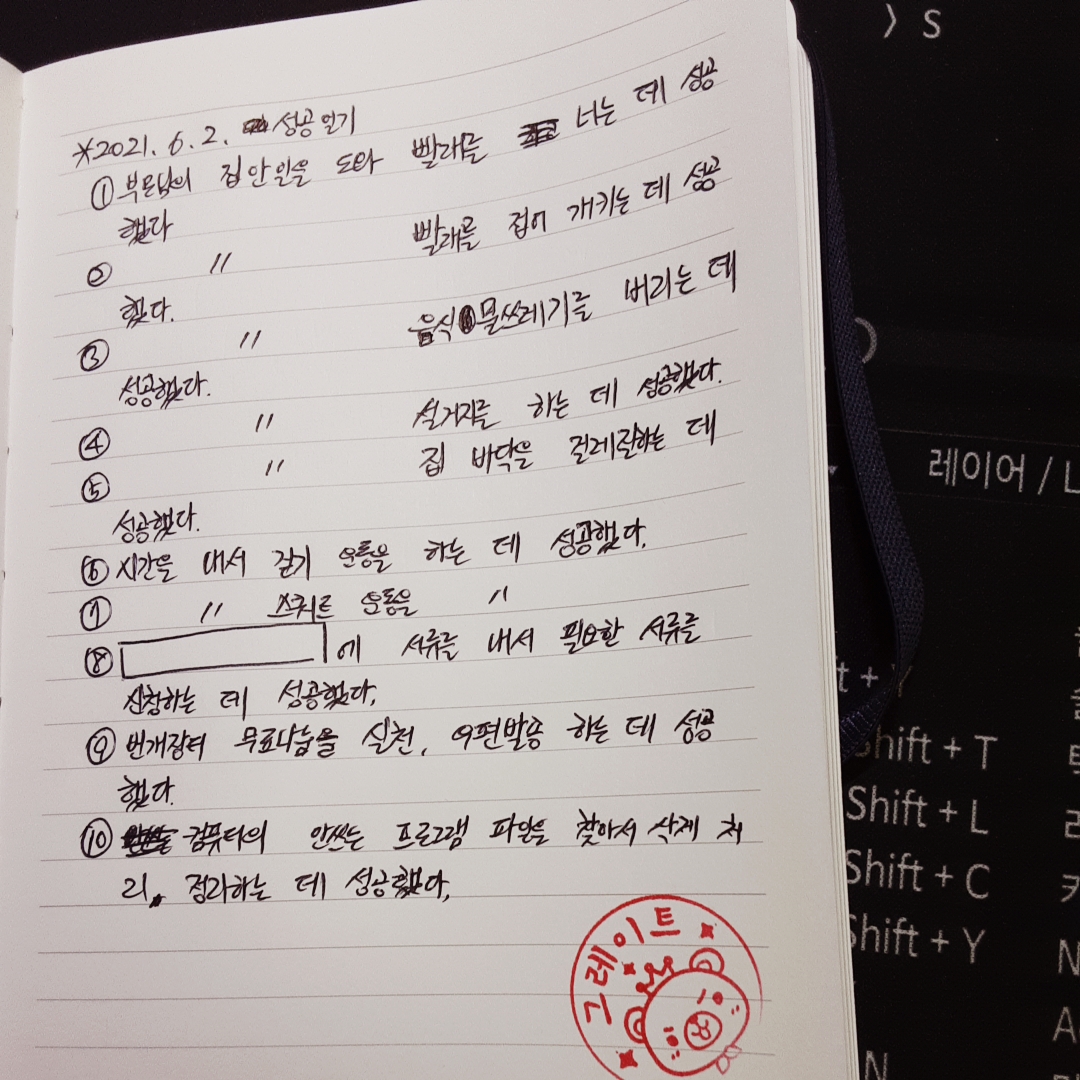 *2021. 6. 2. 성공일기
① 부모님의 집안일을 도와 빨래를 너는 데 성공
했다
② 〃 빨래를 접어 개키는 데 성공
했다.
③ 〃 음식물쓰레기를 버리는 데
성공했다.
④ 〃 설거지를 하는 데 성공했다.
⑤ 〃 집 바닥을 걸레질하는 데
성공했다.
⑥ 시간을 내서 걷기 운동을 하는 데 성공했다.
⑦ 〃 스쿼트 운동을 〃
⑧ 에 서류를 내서 필요한 서류를
신청하는 데 성공했다.
⑨ 번개장터 무료나눔을 실천, 우편발송 하는 데 성공
했다.
⑩ 컴퓨터의 안쓰는 프로그램 파일을 찾아서 삭제 처
리, 정리하는 데 성공했다.
그레이트
〉 S
레이어 / L
t + Y
Shift + T
Shift + L
Shift + C
Shift + Y
N